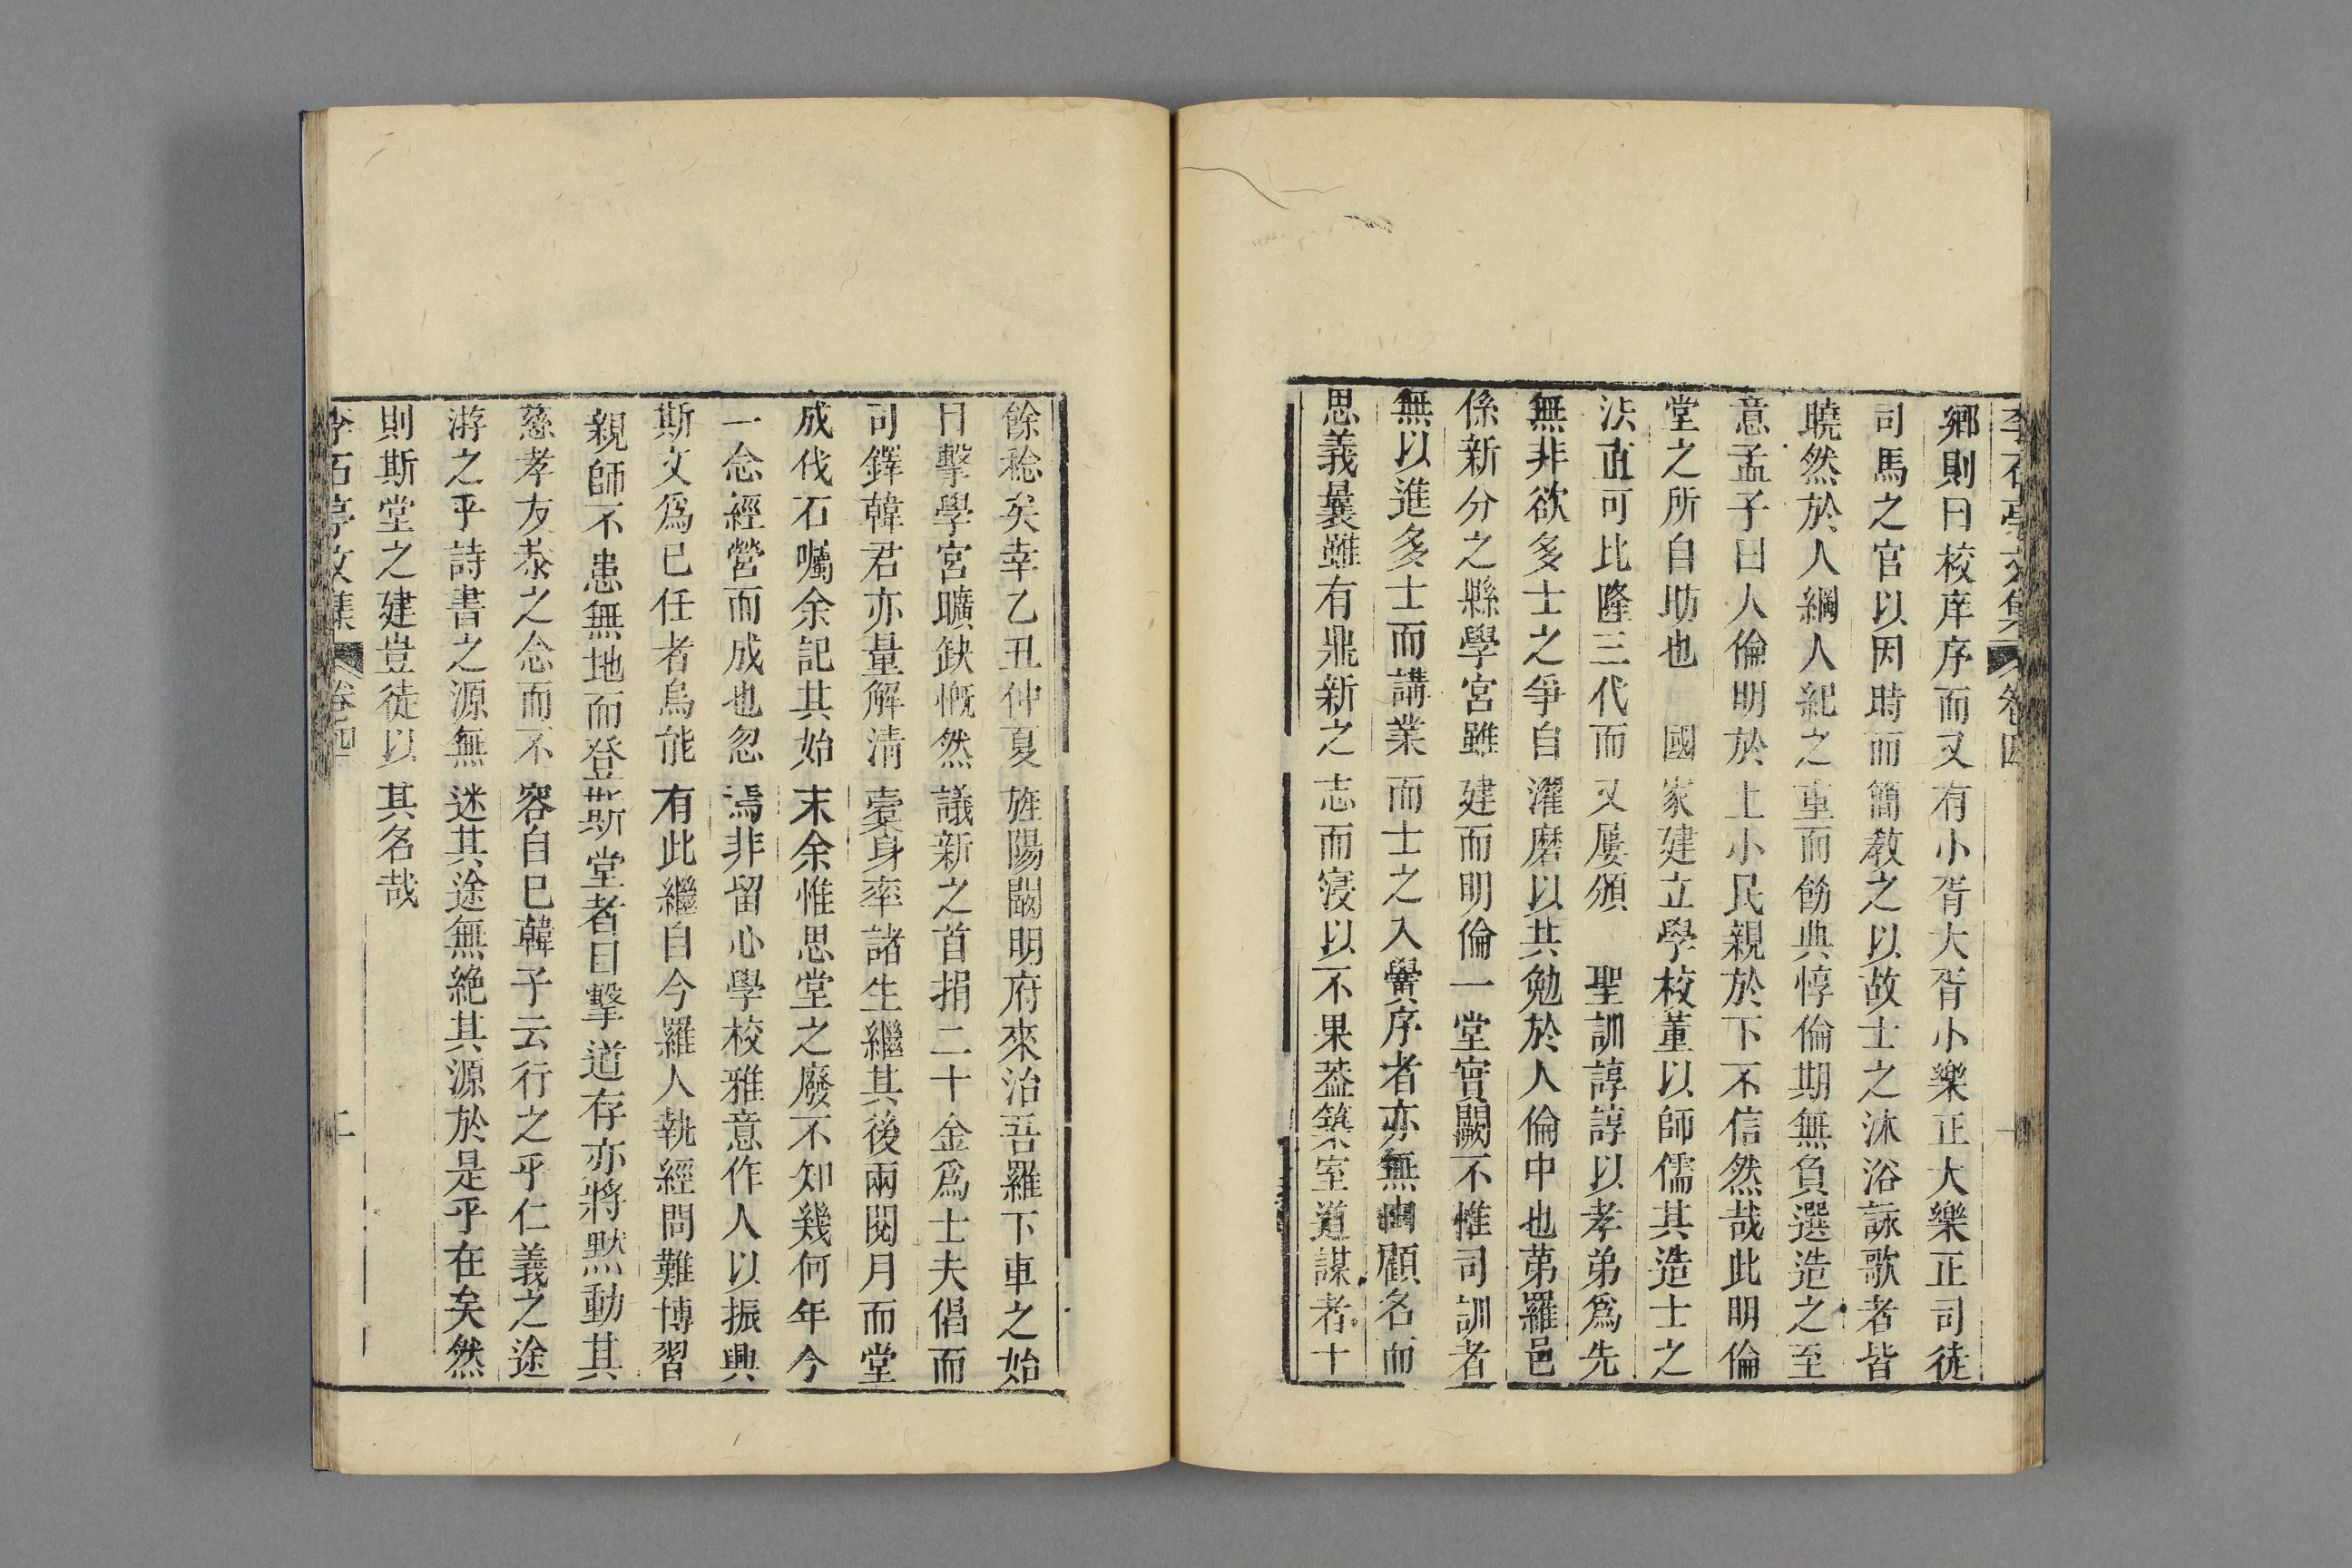 李石亭文集 卷四
鄉則曰校庠序而又有小胥大胥小樂正大樂正司徒
司馬之官以因時而簡教之以故士之沐浴詠歌者皆
曉然於人綱人紀之重而飭典惇倫期無負選造之至
意孟子曰人倫明於上小民親於下不信然哉此明倫
堂之所自昉也 國家建立學校董以師儒其造士之
法直可比隆三代而又屢頒 聖訓諄諄以孝弟為先
無非欲多士之爭自濯磨以共勉於人倫中也苐羅邑
係新分之縣學宮雖建而明倫一堂實闕不惟司訓者
無以進多士而講業而士之入黌序者亦無由顧名而
思義曩雖有鼎新之志而寖以不果葢築室道謀者十
餘稔矣幸乙丑仲夏旌陽闞明府來治吾羅下車之始
日擊學宮曠缺慨然議新之首捐二十金為士夫倡而
司鐸韓君亦量解清橐身率諸生繼其後兩閱月而堂
成伐石囑余記其始末余惟思堂之廢不知幾何年今
一念經營而成也忽焉非留心學校雅意作人以振興
斯文為已任者烏能有此繼自今羅人執經問難博習
親師不患無地而登斯堂者目擊道存亦將默動其
慈孝友恭之念而不容自巳韓子云行之乎仁義之途
游之乎詩書之源無迷其途無絶其源於是乎在矣然
則斯堂之建豈徒以其名哉
李石亭文集 卷四